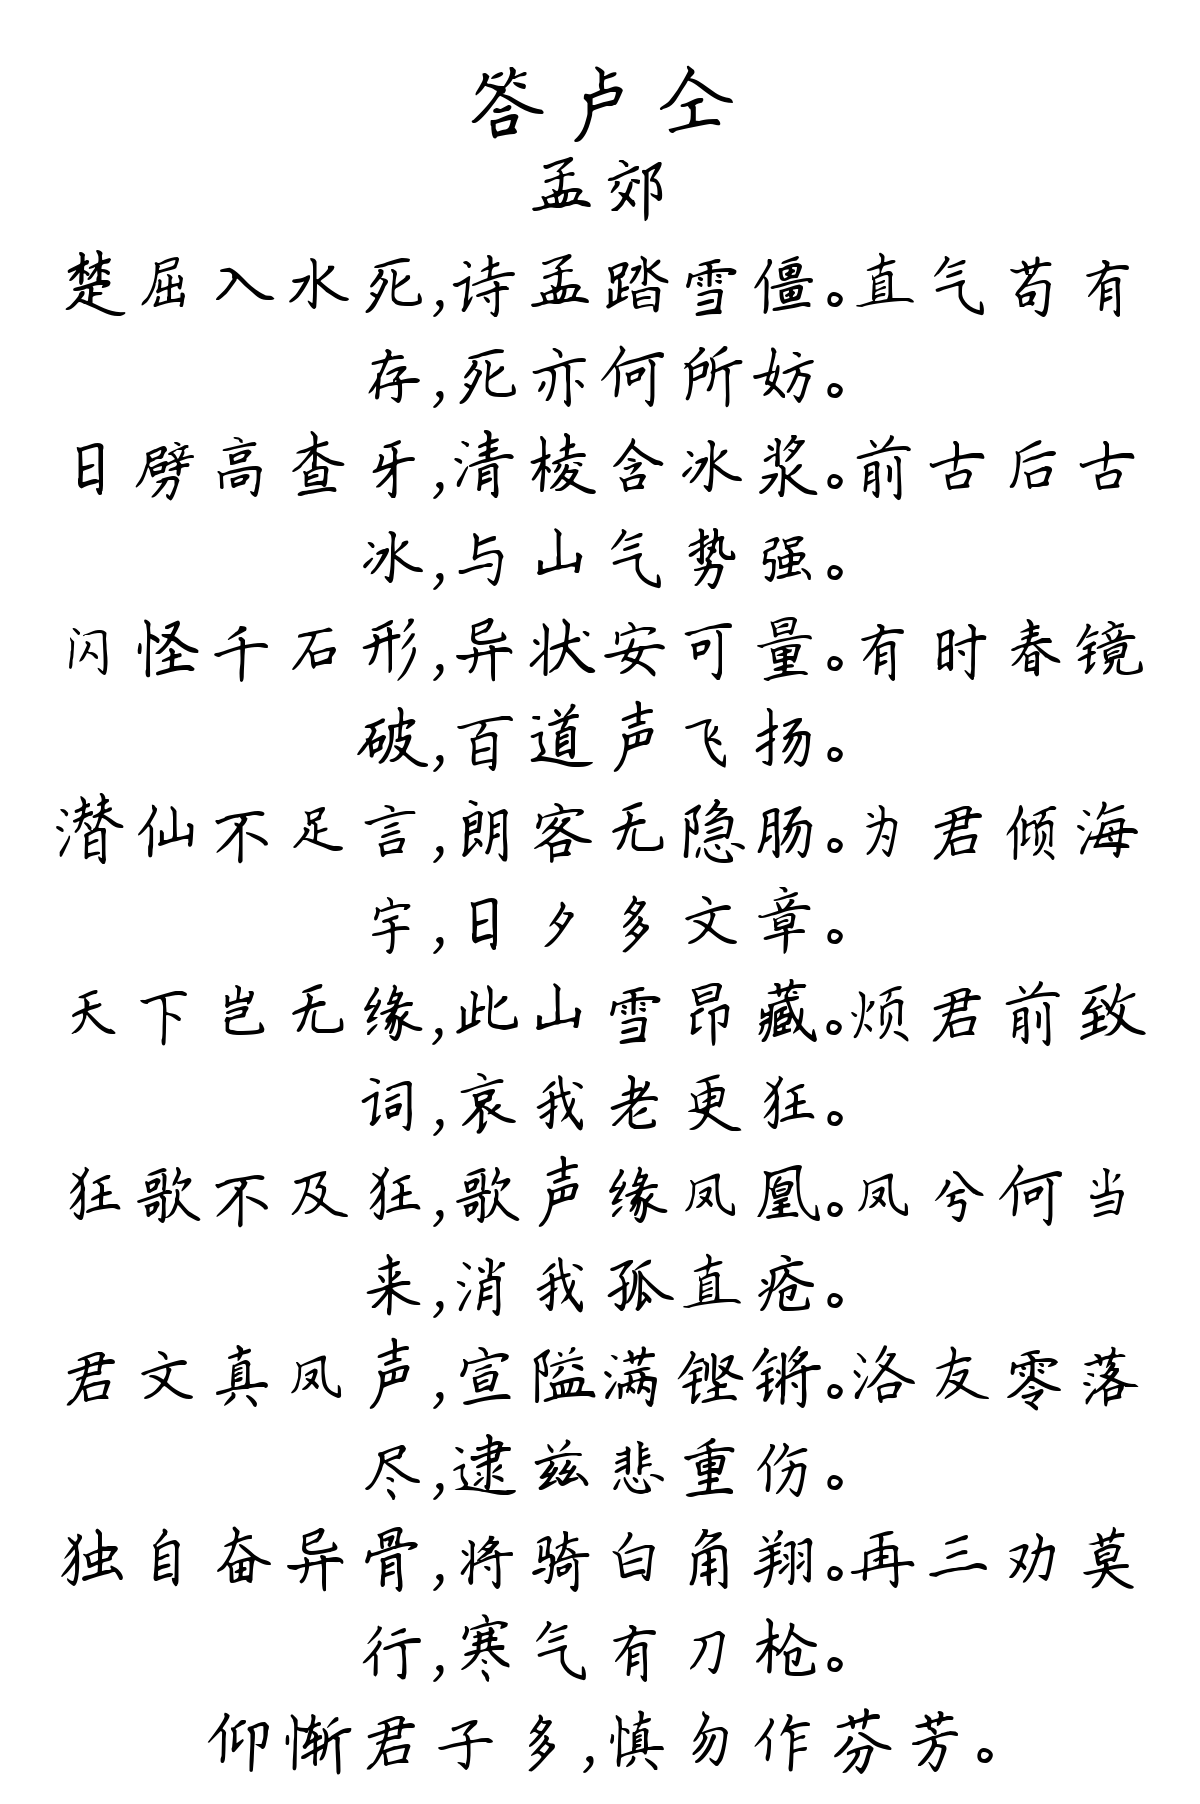 答卢仝
孟郊
楚屈入水死,诗孟踏雪僵。直气苟有
存,死亦何所妨。
日劈高查牙,清棱含冰浆。前古后古
冰,与山气势强。
闪怪千石形,异状安可量。有时春镜
破,百道声飞扬。
潜仙不足言,朗客无隐肠。为君倾海
宇,日夕多文章。
天下岂无缘,此山雪昂藏。烦君前致
词,哀我老更狂。
狂歌不及狂,歌声缘凤凰。凤兮何当
来,消我孤直疮。
君文真凤声,宣隘满铿锵。洛友零落
尽,逮兹悲重伤。
独自奋异骨,将骑白角翔。再三劝莫
行,寒气有刀枪。
仰惭君子多,慎勿作芬芳。